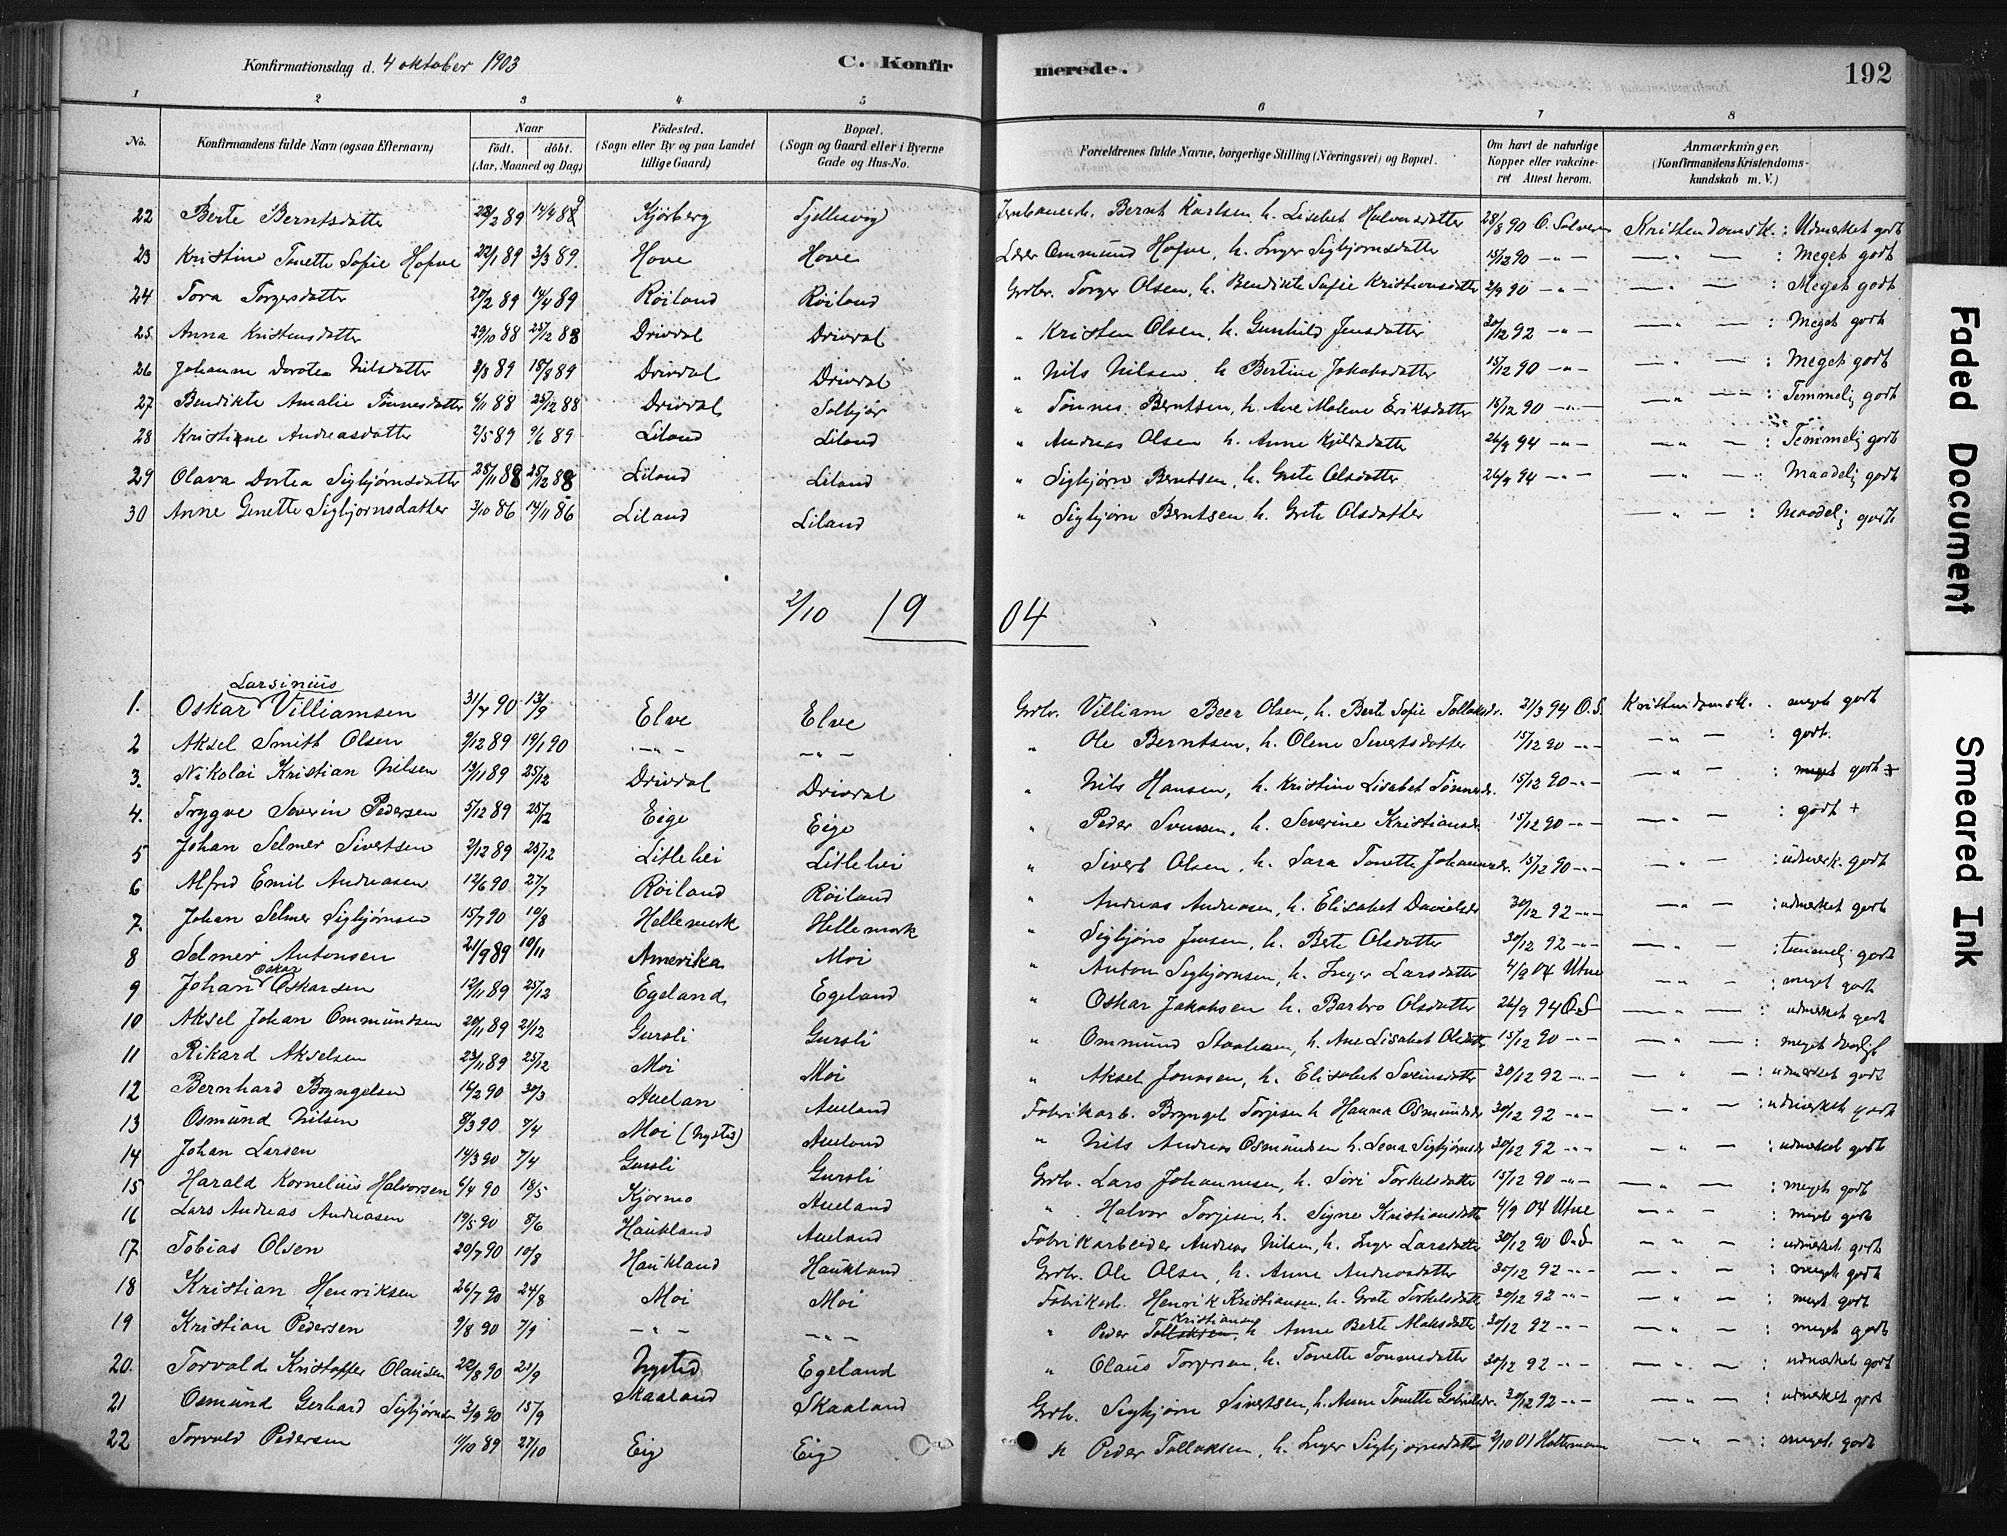 Konfirmationsdag d. 4 oktober 1903 C. Konfirmerede. 192
1 2 3 4 5 6 7 8
No. Konfirmandens fulde Navn (ogsaa Efternavn) Naar født. døbt. (Aar, Maaned og Dag) Fødested. (Sogn eller By og paa Landet tillige Gaard) Bopæl. (Sogn og Gaard eller i Byerne Gade og Hus-No. Forældrenes fulde Navne, borgerlige Stilling (Næringsvei) og Bopæl. Om havt de naturlige Kopper eller vakcineret Attest herom. Anmærkninger. (Konfirmandens Kristendomskundskab m. V.)
22 Berte Berntsdatter 28/2 89 Kjørberg Tjellesvig Bernt Karlsen, h. Lisebet Halvorsdatter 28/8 90 Kristendomsk. : Udmerket godt
23 Kristine Tonette Sofie Hofve 22/1 89 3/3 89 Hove Hove Lærer Ommund Hofve, h. Inger Sigbjørnsdatter 15/12 90 -"- — " — : Meget godt
24 Tora Torgersdatter 20/2 89 14/4 89 Røiland Røiland Grdbr. Torger Olsen, h. Bendikte Sofie Kristiansdatter 2/9 90 -"- — " — : Meget godt
25 Anna Kristensdatter 29/10 88 25/12 88 Drivdal Drivdal " Kristen Olsen, h. Gunhild Jensdatter 30/12 92 -"- — " — : Meget godt
26 Johanne Dorotea Nilsdatter 3/3 89 18/8 89 Drivdal Drivdal " Nils Nilsen h. Bertine Jakobsdatter 15/12 90 -"- — " — : Meget godt
27 Bendikte Amalie Tønnesdatter 6/11 88 25/12 88 Drivdal Solbjør " Tønnes Berntsen, h. Ane Malene Eriksdatter 15/12 90 -"- — " — : Temmelig godt
28 Kristine Andreasdatter 2/5 89 9/6 89 Liland Liland " Andreas Olsen h. Anne Kjeldsdatter 26/9 94 -"- — " — : Temmelig godt
29 Olava Dortea Sigbjørnsdatter 25/11 88 25/12 88 Liland Liland " Sigbjørn Berntsen, h. Grete Olsdatter 26/9 94 -"- — " — : Maadelig godt
30 Anne Genette Sigbjørnsdatter 3/10 86 14/11 86 Liland Liland " Sigbjørn Berntsen h. Grete Olsdatter — " — : Maadelig godt
2/10 1904
1. Oskar Larsinius Villiamsen 31/7 90 13/9 Elve Elve Grdbr. Villiam Beer Olsen, h. Berte Sofie Tollaksdr. 2/3 94 O.S. Kristendomsk. . meget godt
2 Aksel Smith Olsen 9/12 89 19/1 90 -"- -"- " Ole Berntsen, h. Olene Sivertsdatter 15/12 90 -"- — " — : godt.
3. Nikolai Kristian Nilsen 13/11 89 25/12 Drivdal Drivdal " Nils Hansen, h. Kristine Lisabet Tønnesdr. 15/12 90 -"- — " — : meget godt
4. Trygve Severin Pedersen 5/12 89 25/12 Eige Eige " Peder Svensen, h. Severine Kristiansdr 15/12 90 -"- — " — : godt +
5 Johan Selmer Sivertsen 2/12 89 25/12 Litlehei Litlehei " Sivert Olsen, h. Sara Tonette Johannesdr. 15/12 90 -"- — " — : udmerk. godt
6 Alfred Emil Andreasen 12/6 90 27/7 Røiland Røiland " Andreas Andreasen, h. Elisabet Danielsdr 30/12 92 -"- — " — : udmerket godt
7. Johan Selmer Sigbjørnsen 15/7 90 10/8 Hellemork Hellemork " Sigbjørn Jensen, h. Berte Olsdatter 30/12 92 -"- — " — : temmelig godt
8 Selmer Antonsen 21/9 89 10/11 Amerika Moi " Anton Sigbjørnsen, h. Inger Larsdatter 4/9 04 Utne — " — : meget godt
9 Johan Oskar Oskarsen 12/11 89 25/12 Egeland, Egeland " Oskar Jakobsen h. Barbro Olsdatter 26/9 94 O.S — " — : udmerket godt
10 Aksel Johan Ommundsen 20/11 89 21/12 Gursli Gursli " Ommund h. Ane Lisabet Olsdatter 15/12 90 -"- — " — : meget
11 Rikard Akselsen 23/11 89 25/12 Moi Moi " Aksel Jonasen, h. Elisabet Sveinsdatter 30/12 92 -"- — " — : udmerket godt
12 Bernhard Bryngelsen 16/2 90 30/3 Auelan Aueland Fabrikarb. Bryngel Torjesen h Hanna Osmundsdr 30/12 92 -"- — " — : udmerket godt
13 Osmund Nilsen 8/3 90 7/4 Moi (Nysted) Aueland " Nils Andreas Osmundsen h. Lena Sigbjørnsdr 30/12 92 -"- — " — : udmerket godt
14 Johan Larsen 14/3 90 7/4 Gursli Gursli Grdbr. Lars Johannesen, h. Siri Torkelsdatter 15/12 90 -"- — " — : meget godt
15 Harald Kornelius Halvorsen 6/4 90 18/5 Kjørmo Aueland " Halvor Torjesen, h. Signe Kristiansdatter 4/9 04 Utne — " — : meget godt
16 Lars Andreas Andreasen 19/5 90 8/6 Haukland Aueland Fabrikarbeider Andreas Nilsen, h. Inger Larsdatter 30/12 90 O.S. — " — : udmerket godt
17. Tobias Olsen 20/7 90 10/8 Haukland Haukland Grdbr. Ole Olsen, h. Anne Andreasdatter 30/12 92 -"- — " — : meget godt
18 Kristian Henriksen 26/7 90 24/8 Moi Moi Fabrikarb. Henrik Kristiansen, h. Grete Torkelsdatter 30/12 92 -"- — " — : meget godt
19 Kristian Pedersen 9/8 90 7/9 -"- -"- " Peder Kristiansen h Anne Berte Aksdatter 30/12 92 -"- — " — : meget godt
20. Torvald Kristoffer Olausen 22/8 90 21/9 Nysted Egeland " Olaus Torgersen, h. Tonette Tønnesdatter 30/12 92 -"- — " — : udmerket godt
21 Osmund Gerhard Sigbjørnsen 3/9 90 15/9 Skaaland Skaaland Grdbr. Sigbjørn Sivertsen, h. Anne Tonette Gabrielsdr. 30/12 92 -"- — " — : udmerket godt
22 Torvald Pedersen 11/10 89 27/10 Eig Eig Peder Tollaksen, h. Inger Sigbjørnsdatter 2/10 01 Holtermann — " — : meget godt
Faded Document
Smeared Ink